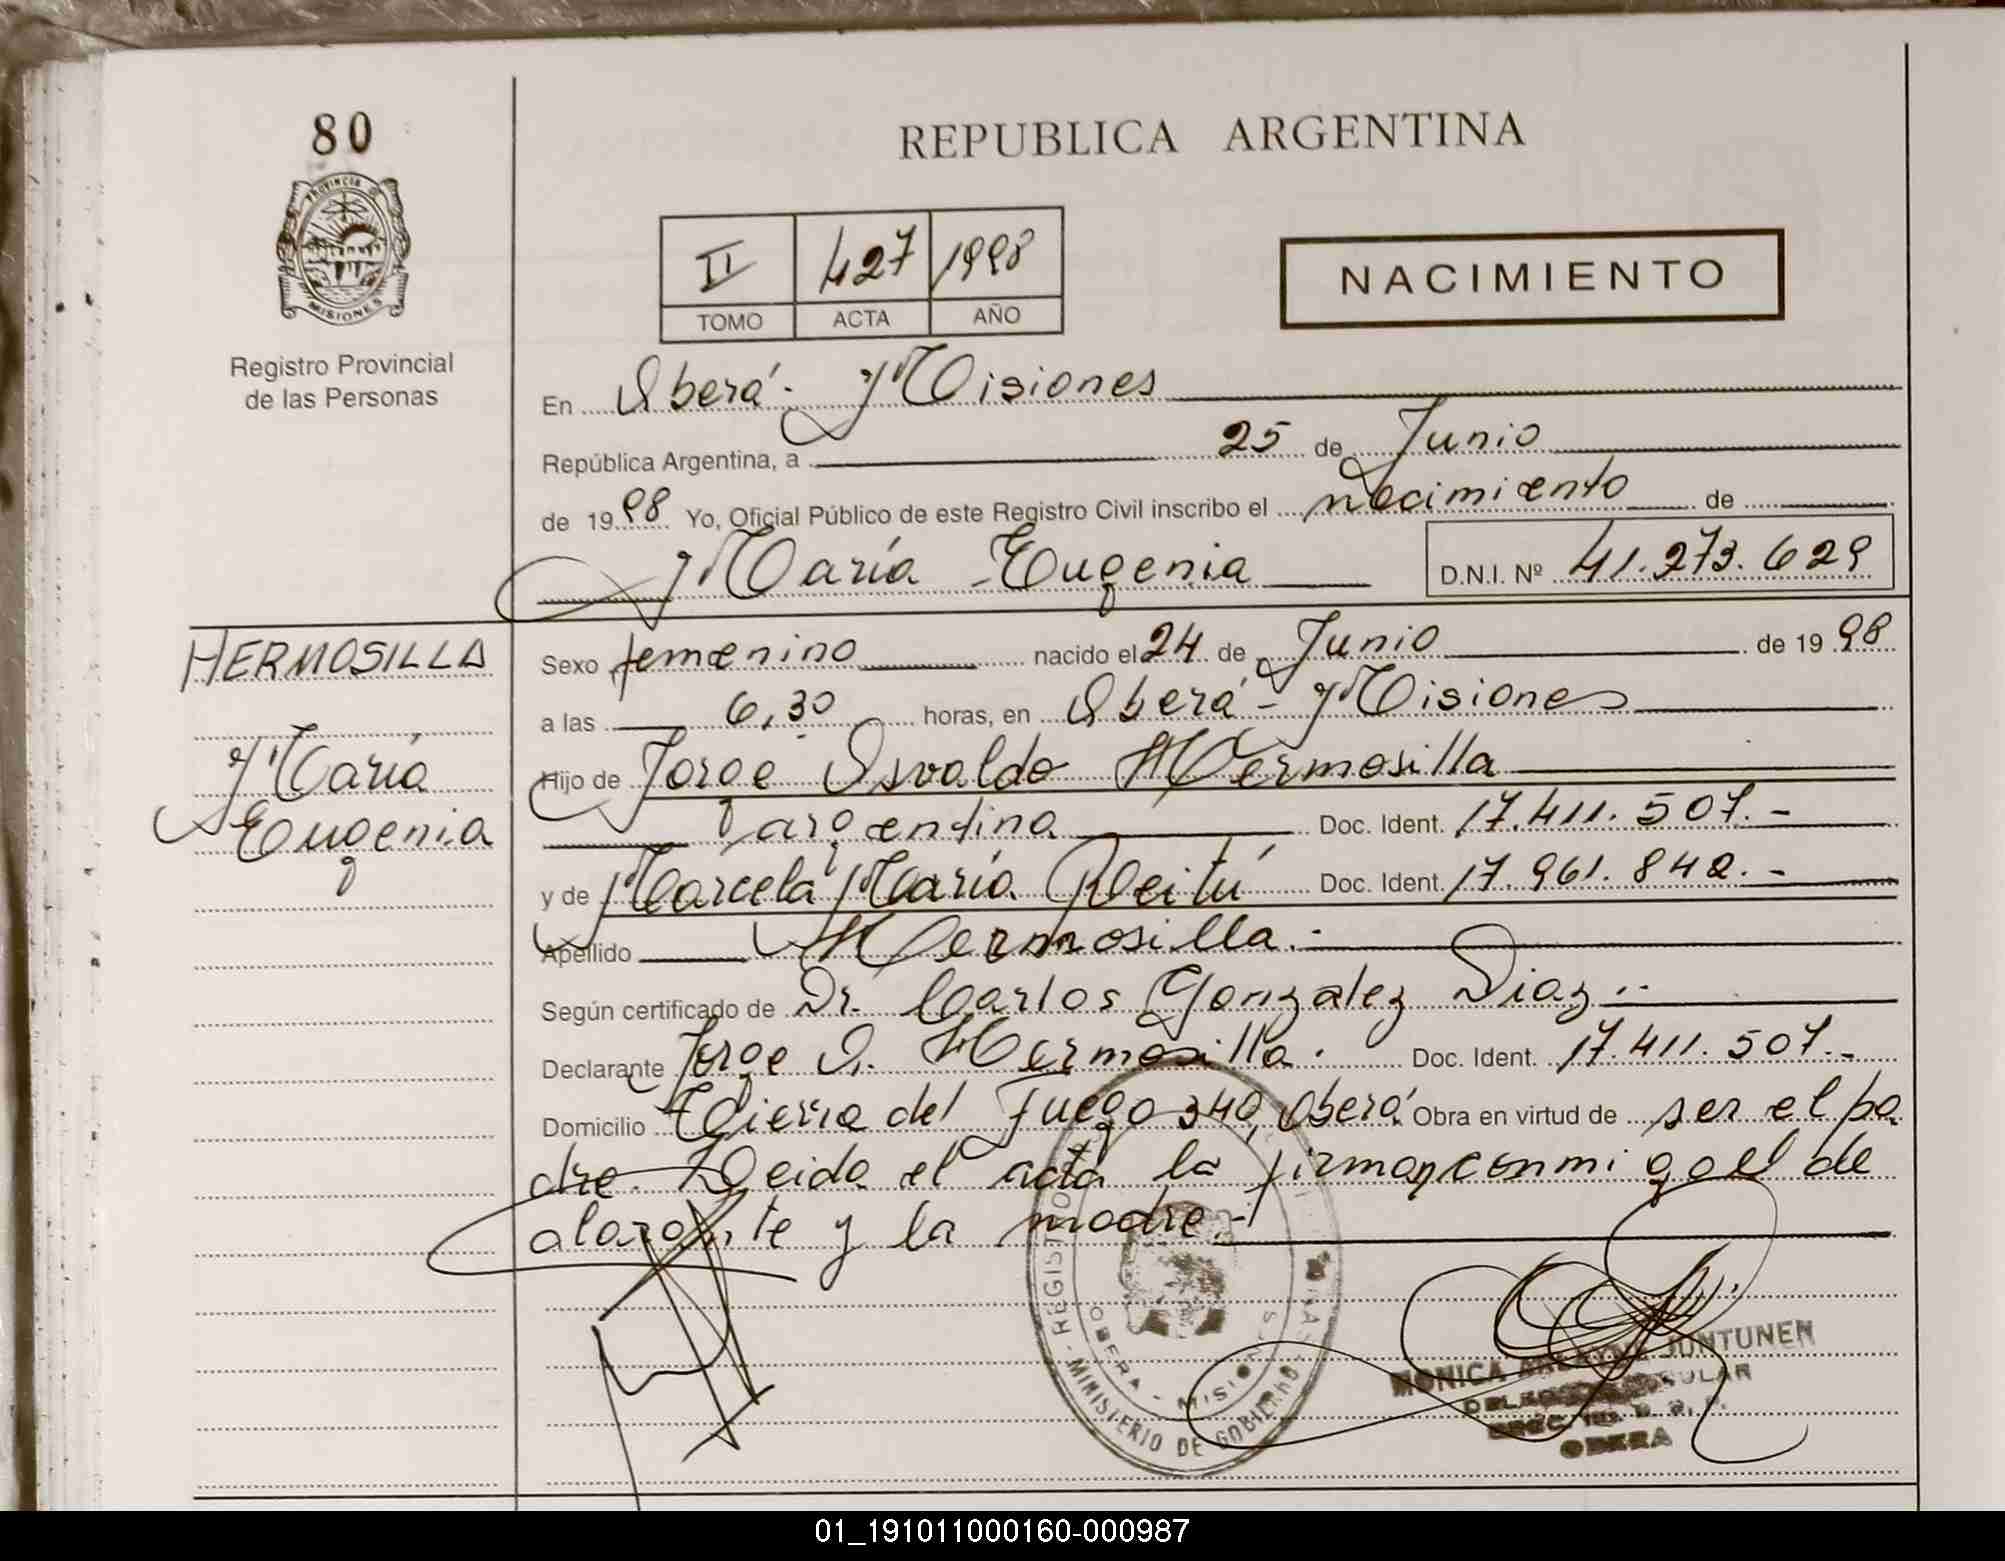 80
PROVINCIA D
MISIONES
Registro Provincial
de las Personas
REPUBLICA ARGENTINA
II 427 1998
TOMO ACTA AÑO
NACIMIENTO
En Oberá - Misiones
República Argentina, a 25 de Junio
de 1998 Yo, Oficial Público de este Registro Civil inscribo el nacimiento de
María Eugenia D.N.I. Nº 41.273.629
HERMOSILLA
María
Eugenia
Sexo femenino nacido el 24 de Junio de 1998
a las 6,30 horas, en Oberá - Misiones
Hijo de Jorge Osvaldo Hermosilla
argentina Doc. Ident. 17.411.507.-
y de Marcela María Doc. Ident. 17.961.842.-
Apellido Hermosilla.-
Según certificado de Dr. Carlos Gonzalez Diaz.-
Declarante Jorge O. Hermosilla. Doc. Ident. 17.411.507.-
Domicilio Tierra del Fuego 340, Oberá Obra en virtud de ser el pa
dre. Leida el acta la firman conmigo el de
clarante y la madre.-
REGISTRO
MINISTERIO DE GOBIERNO
OBERA - MISIONES
MONICA JUNTUNEN
OBERA
01_191011000160-000987